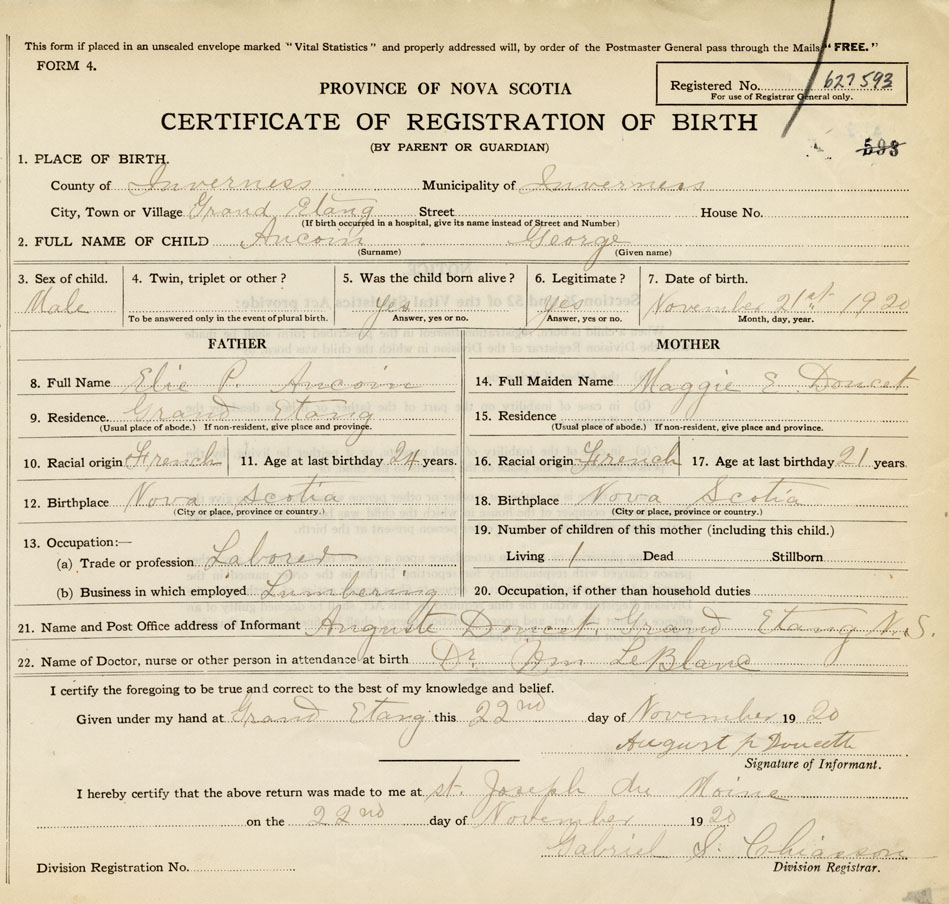 This form if placed in an unsealed envelope marked "Vital Statistics" and properly addressed will, by order of the Postmaster General pass through the Mails "FREE."
FORM 4.
Registered No. 627593
For use of Registrar General only.
PROVINCE OF NOVA SCOTIA
CERTIFICATE OF REGISTRATION OF BIRTH
(BY PARENT OR GUARDIAN)
593
1. PLACE OF BIRTH.
County of Inverness Municipality of Inverness
City, Town or Village Grand Etang Street House No.
(If birth occurred in a hospital, give its name instead of Street and Number)
2. FULL NAME OF CHILD Aucoin George
(Surname) (Given name)
3. Sex of child. 4. Twin, triplet or other? 5. Was the child born alive? 6. Legitimate? 7. Date of birth.
Male Yes Yes November 21st 1920
To be answered only in the event of plural birth. Answer, yes or no. Answer, yes or no. Month, day, year.
FATHER MOTHER
8. Full Name Elie P. Aucoin 14. Full Maiden Name Maggie E Doucet
9. Residence. Grand Etang 15. Residence
(Usual place of abode.) If non-resident, give place and province. (Usual place of abode.) If non-resident, give place and province.
10. Racial origin French 11. Age at last birthday 24 years. 16. Racial origin French 17. Age at last birthday 21 years.
12. Birthplace Nova Scotia 18. Birthplace Nova Scotia
(City or place, province or country.) (City or place, province or country.)
13. Occupation:— 19. Number of children of this mother (including this child.)
(a) Trade or profession Laborer Living 1 Dead Stillborn
(b) Business in which employed Lumbering 20. Occupation, if other than household duties
21. Name and Post Office address of Informant Auguste Doucet Grand Etang N.S.
22. Name of Doctor, nurse or other person in attendance at birth Dr. Wm LeBlanc
I certify the foregoing to be true and correct to the best of my knowledge and belief.
Given under my hand at Grand Etang this 22nd day of November 1920
August p Doucette
Signature of Informant.
I hereby certify that the above return was made to me at St. Joseph du Moine
on the 22nd day of November 1920
Gabriel S. Chiasson
Division Registration No. Division Registrar.